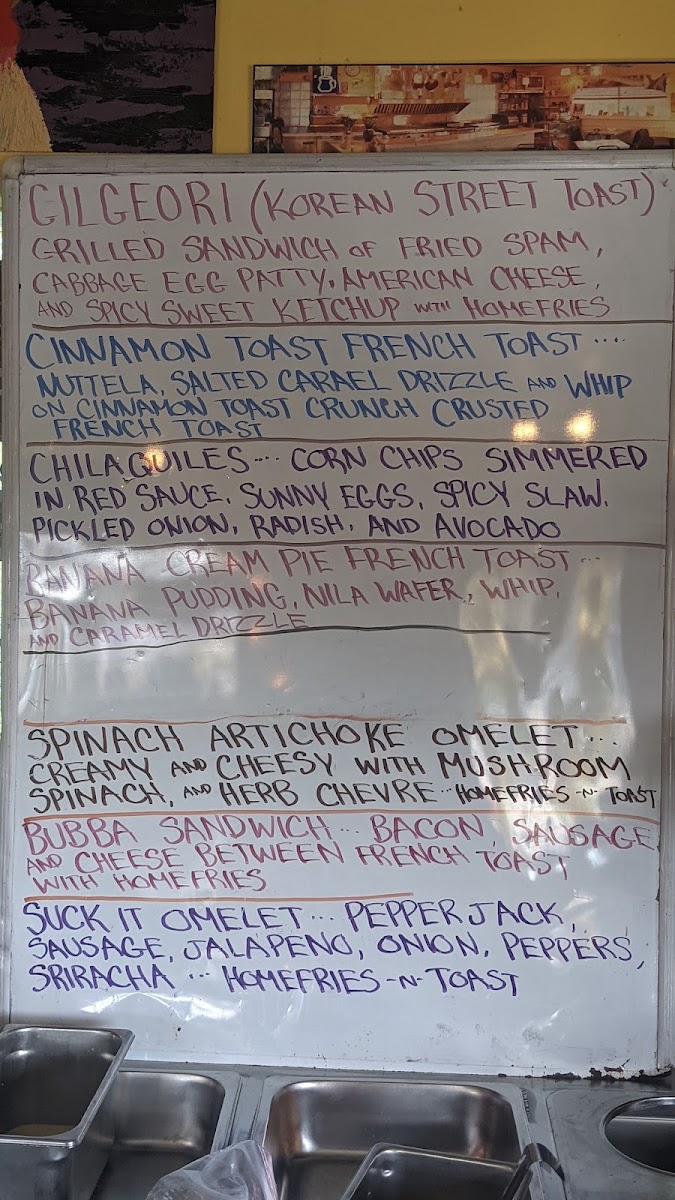 GILGEORI (KOREAN STREET TOAST)
GRILLED SANDWICH OF FRIED SPAM,
CABBAGE EGG PATTY, AMERICAN CHEESE,
AND SPICY SWEET KETCHUP WITH HOMEFRIES
CINNAMON TOAST FRENCH TOAST ....
NUTTELA, SALTED CARAEL DRIZZLE AND WHIP
ON CINNAMON TOAST CRUNCH CRUSTED
FRENCH TOAST
CHILAQUILES.... CORN CHIPS SIMMERED
IN RED SAUCE, SUNNY EGGS, SPICY SLAW,
PICKLED ONION, RADISH, AND AVOCADO
BANANA CREAM PIE FRENCH TOAST ...
BANANA PUDDING, NILA WAFER, WHIP,
AND CARAMEL DRIZZLE
SPINACH ARTICHOKE OMELET...
CREAMY AND CHEESY WITH MUSHROOM
SPINACH, AND HERB CHEVRE...HOMEFRIES-N-TOAST
BUBBA SANDWICH... BACON, SAUSAGE
AND CHEESE BETWEEN FRENCH TOAST
WITH HOMEFRIES
SUCK IT OMELET... PEPPER JACK,
SAUSAGE, JALAPENO, ONION, PEPPERS,
SRIRACHA ... HOMEFRIES-N-TOAST